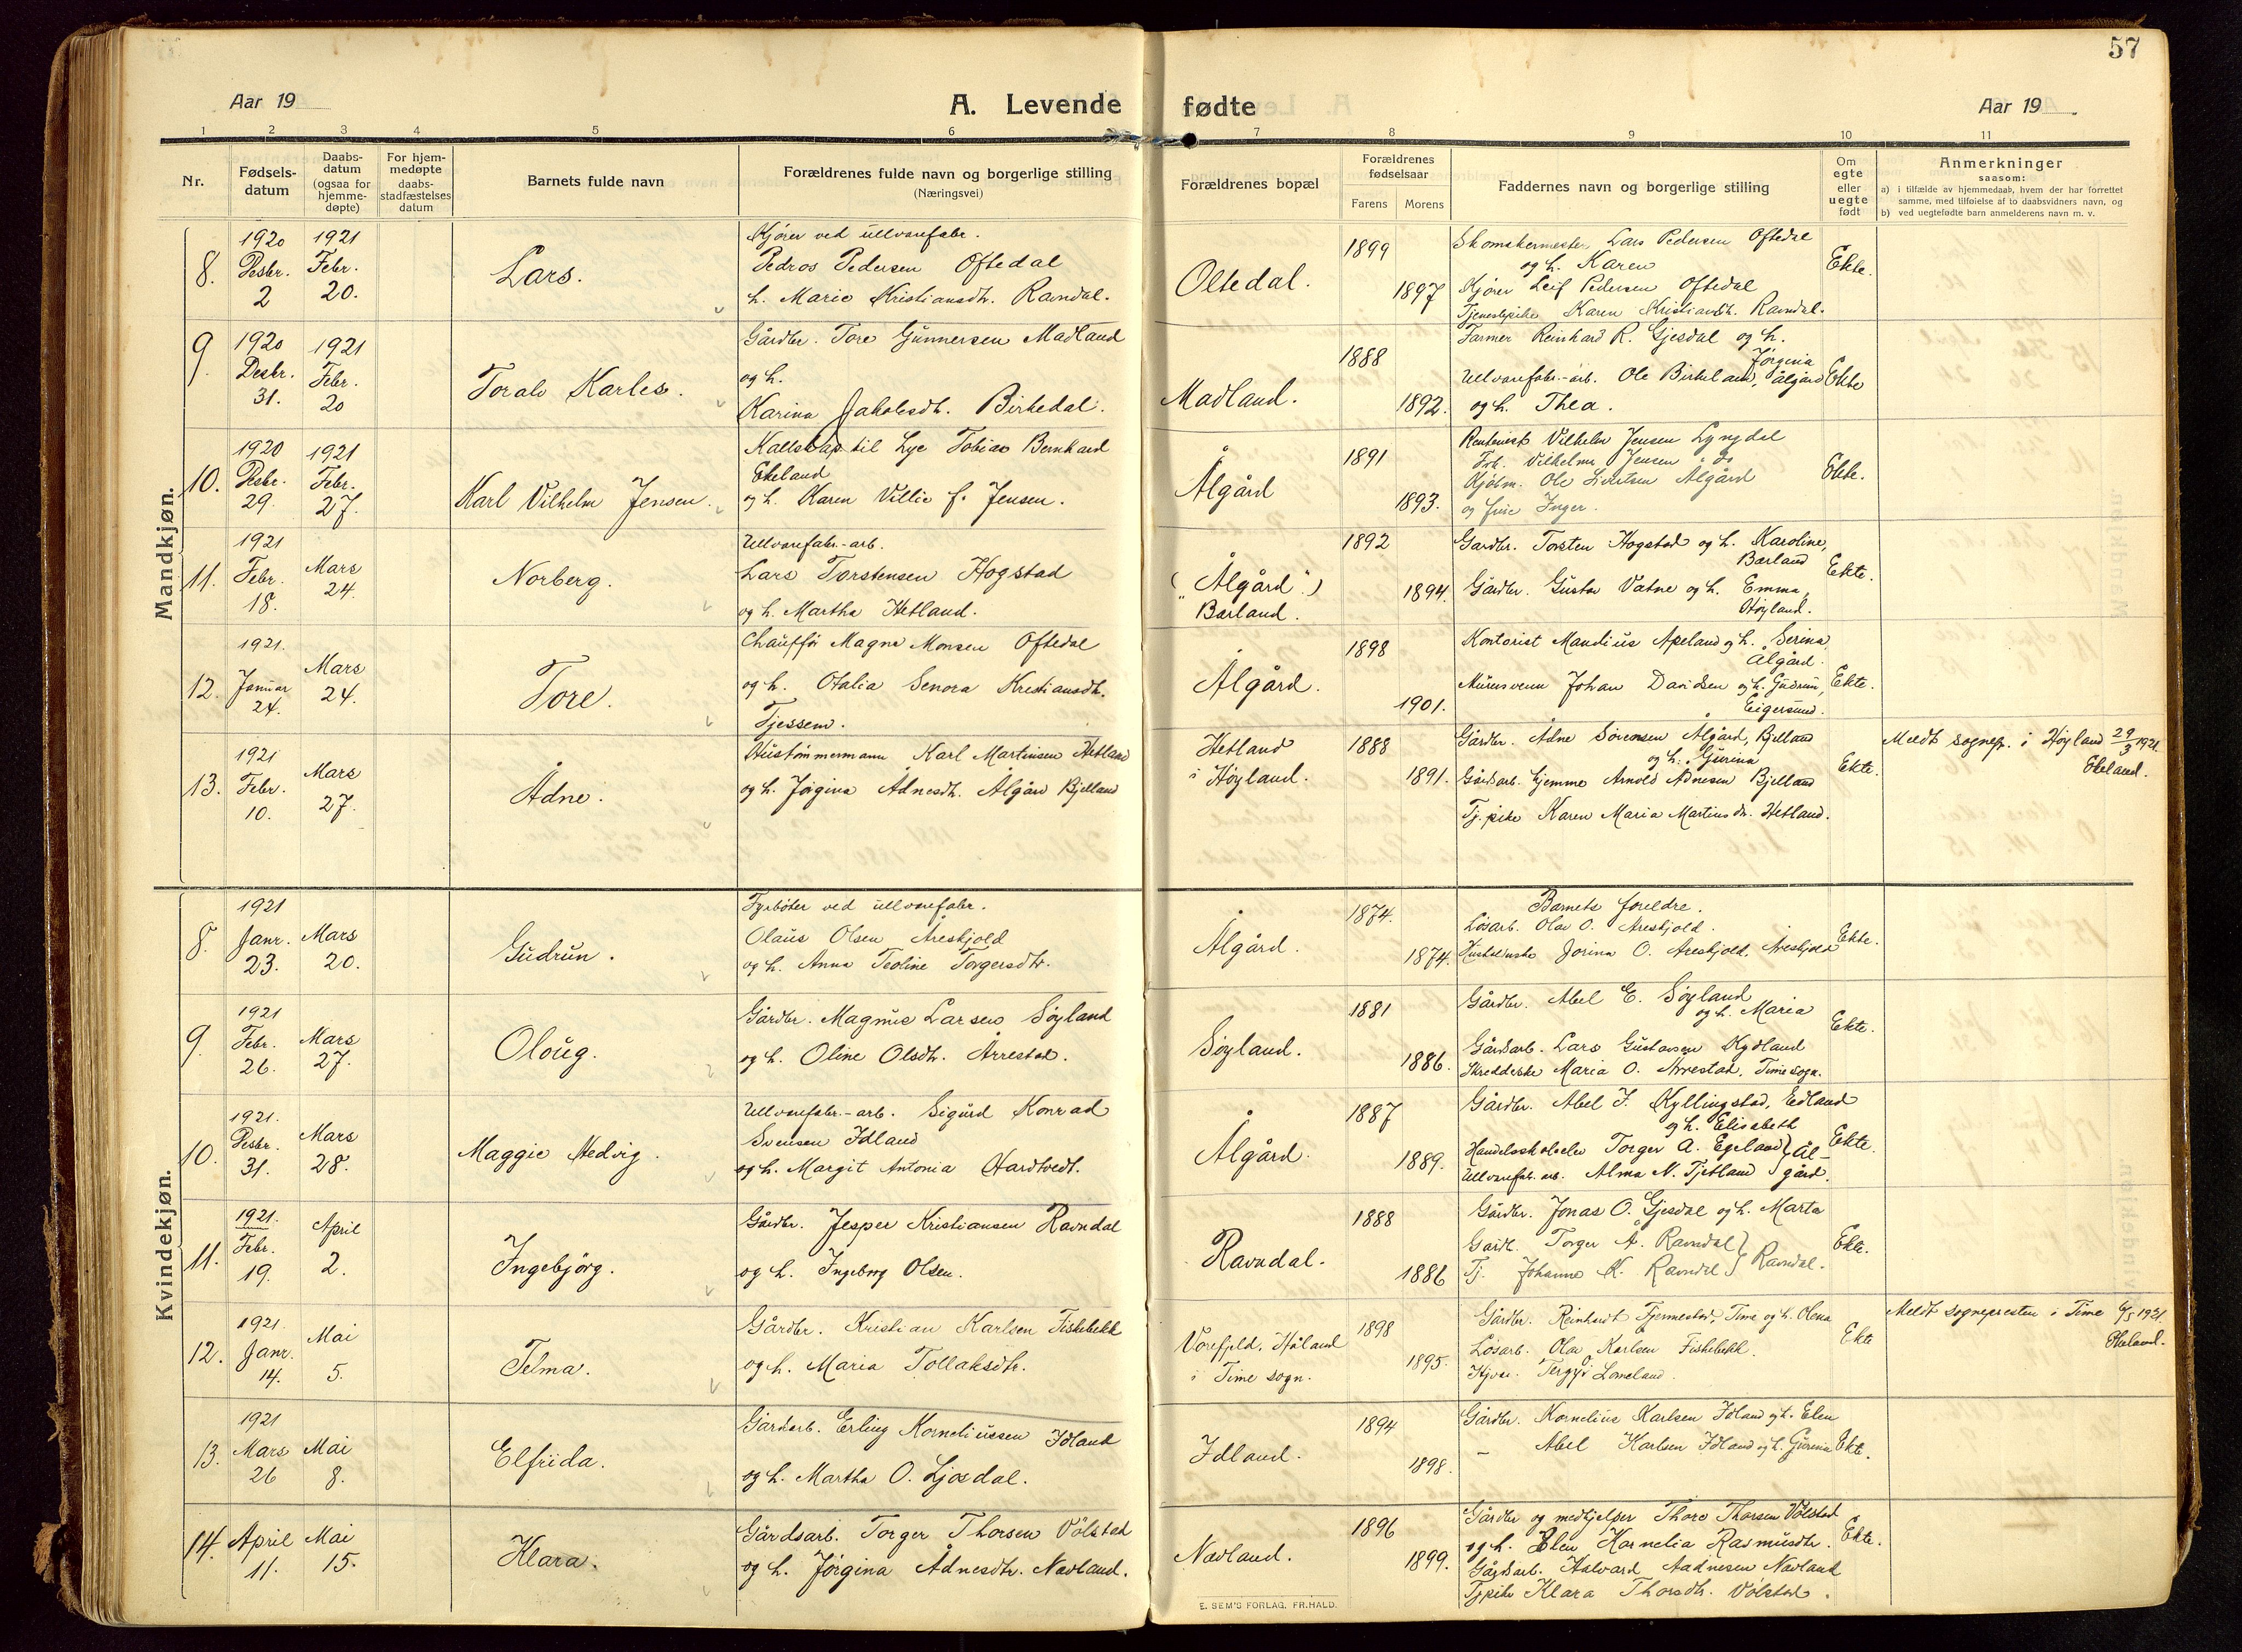 57
Aar 19
A. Levende
fødte
Aar 19
1 2 3 4 5 6 7 8 9 10 11
Nr.
Fødsels-
datum
Daabs-
datum
(ogsaa for
hjemme-
døpte)
For hjem-
medøpte
daabs-
stadfæstelses
datum
Barnets fulde navn
Forældrenes fulde navn og borgerlige stilling
(Næringsvei)
Forældrenes bopæl
Forældrenes
fødselsaar
Farens
Morens
Faddernes navn og borgerlige stilling
Om
egte
eller
uegte
født
Anmerkninger
saasom:
a) i tilfælde av hjemmedaab, hvem der har forrettet
samme, med tilføielse af to daabsvidners navn, og
b) ved uegtefødte barn anmelderens navn m. v.
Mandkjøn.
8.
1920
Desbr.
2
1921
Febr.
20.
Lars.
Kjører ved ullvarefabr.
Pedros Pedersen Oftedal
h. Marie Kristiansdtr. Ravndal.
Oltedal.
1899
1897
Skomakermester Lars Pedersen Oftedal
og h. Karen
Kjører Leif Pedersen Oftedal
Tjenestepike Karen Kristiansdtr. Ravndal.
Ekte.
9.
1920
Desbr.
31.
1921
Febr.
20
Toralv Karles.
Gårdbr. Tore Gunnersen Madland
og h.
Karina Jakobsdtr. Birkedal.
Madland.
1888
1892.
Farmer Reinhard R. Gjesdal og h.
Jørgina
Ullvarefabr.-arb. Ole Birkeland, Ålgård
og h. Thea.
Ekte
10.
1920
Desbr.
29.
1921
Febr.
27.
Karl Vilhelm Jensen.
Kallskap. til Lye Tobias Bernhard
Ekeland
og h. Karen Villie f. Jensen.
Ålgård
1891
1893.
Rentenist Vilhelm Jensen Lyngdal
Frk. Vilhelma Jensen i do
Kjøbm. Ole Sivertsen Ålgård
og frue Inger.
Ekte.
11.
1921
Febr.
18.
Mars
24.
Norberg.
Ullvarefabr.-arb.
Lars Torstensen Hogstad
og h. Martha Hetland.
("Ålgård".)
Bærland.
1892
1894.
Gardbr. Torsten Hogstad og h. Karoline,
Bærland
Gårdbr. Gustav Vatne og h. Emma,
Høyland.
Ekte.
12.
1921.
Januar
24.
Mars
24.
Tore.
Chauffør Magne Monsen Oftedal
og h. Otalia Senora Kristiansdtr.
Tjessem.
Ålgård.
1898
1901.
Kontorist Mandius Apeland og h. Serina,
Ålgård.
Murersvenn Johan Davidsen og h. Gudrun,
Eigersund.
Ekte.
13.
1921
Febr.
10.
Mars
27.
Ådne.
Hustømmermann Karl Martinsen Hetland
og h. Jørgina Ådnesdtr. Ålgård Bjelland
Hetland
i Høyland.
1888
1891.
Gårdbr. Ådne Sørensen Ålgård, Bjelland
og h. Gurina
Gårdsarb. hjemme Arnold Adnesen Bjelland
Tj. pike Karen Maria Martinsdtr. Hetland.
Ekte.
Meldt sognepr. i Høyland 29/3 1921.
Ekeland.
Kvindekjøn.
8.
1921
Janr.
23.
Mars
20.
Gudrun.
Fyrbøter ved ullvarefabr.
Olaus Olsen Åreskjold
og h. Anna Teoline Torgersdtr.
Ålgård.
1874.
1874.
Barnets foreldre.
Løsarb. Olav O. Areskjold.
Jorina O. Areskjold, Areskjold
Ekte.
9.
1921
Febr.
26.
Mars
27.
Oloug.
Gårdbr. Magnus Larsen Søyland
og h. Oline Olsdtr. Årrestad.
Søyland.
1881
1886.
Gårdbr. Abel E. Søyland
og h. Maria
Gårdsarb. Lars Gustavsen Kydland
Skredderske Maria O. Arrestad, Time sogn.
Ekte.
10.
1921.
Desbr.
31.
Mars
28.
Maggie Hedvig.
Ullvarefabr.-arb. Sigurd Konrad
Svensen Idland
og h. Margit Antonia Hardtvedt.
Ålgård.
1887
1889.
Gårdbr. Abel J. Kyllingstad, Edland
og h. Elisabeth
Handelsskoleelev Torger A. Egeland } Ål-
Ullvarefabr. arb. Alma N. Tjetland } gård.
Ekte.
11.
1921.
Febr.
19.
April
2.
Ingebjörg.
Gårdbr. Jesper Kristiansen Ravndal
og h. Ingeborg Olsen.
Ravndal.
1888
1886
Gårdbr. Jonas O. Gjesdal og h. Marta
Gardb. Torger Å. Ravndal }
Tj. Johanne K. Ravndal } Ravndal.
Ekte.
12.
1921.
Janr.
14.
Mai
5.
Telma.
Gårdbr. Kristian Karlsen Fiskebekk
og h. Maria Tollaksdtr.
Vorefjeld, Håland
i Time sogn.
1898
1895.
Gårdbr. Reinhardt Fjermestad, Time og h. Olena
Løsarb. Olav Karlsen Fiskebekk.
Lomeland.
Ekte
Meldt sognepresten i Time 6/5 1921.
Ekeland.
13.
1921
Mars
26
Mai
8.
Elfrida.
Gårdsarb. Erling Korneliussen Idland
og h. Martha O. Ljosdal.
Idland.
1894
1898.
Gårdbr. Kornelius Karlsen Idland og h. Elen
– Abel Karlsen Idland og h. Gurina
Ekte.
14.
April
11.
Mai
15.
Klara.
Gårdsarb. Torger Thorsen Vølstad
og h. Jørgina Ådnesdtr. Nædland.
Nædland.
1896
1899.
Gårdbr og medhjelper Thore Thorsen Vølstad
og h. Elen Kornelia Rasmusdtr.
Gårdsarb. Halvard Aadnesen Nædland
Tj pike Klara Thorsdtr. Vølstad.
Ekte.
E. SEM'S FORLAG, FR.HALD.